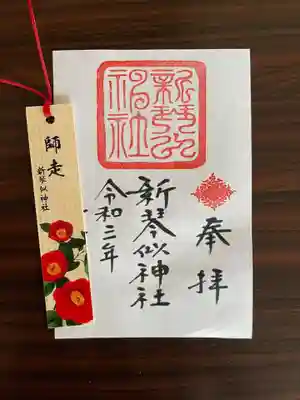 奉拝
新琴似神社
新琴似神社
令和二年
師走
新琴似神社